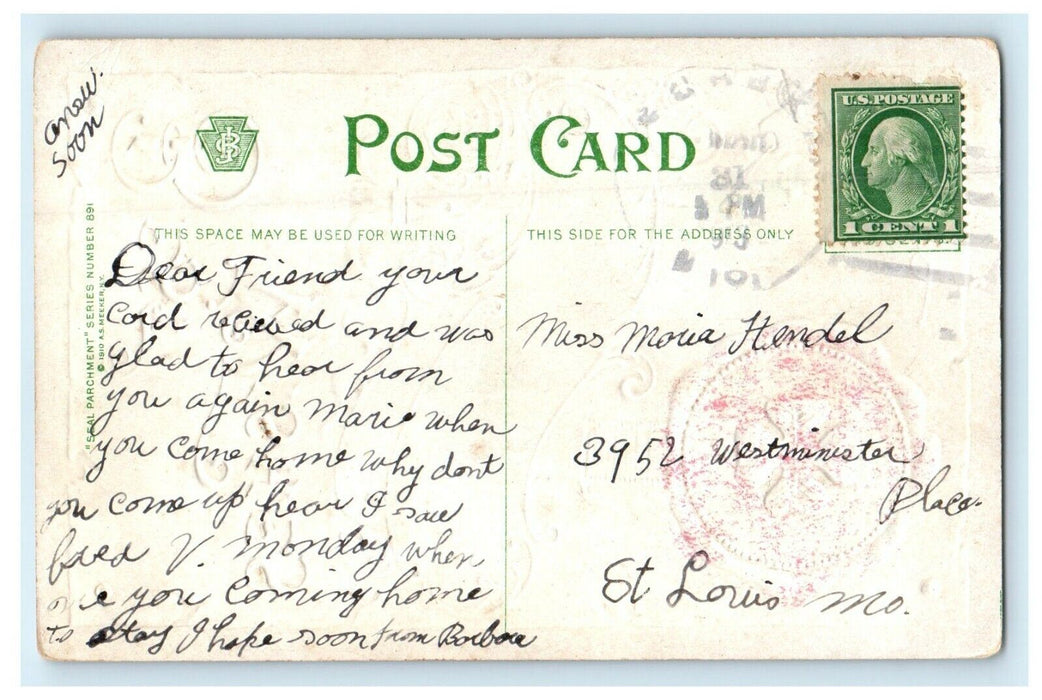 answ
soon
POST CARD
U.S. POSTAGE
1 CENT 1
31
PM
THIS SPACE MAY BE USED FOR WRITING
THIS SIDE FOR THE ADDRESS ONLY
"SEAL PARCHMENT" SERIES NUMBER 891
© 1910 A.S. MEEKER, N.Y.
Dear Friend your
Card recieved and was
glad to hear from
you again Marie when
you come home why dont
you come up hear I saw
V. monday when
are you coming home
to stay I hope soon from Barbara
Miss Maria Hendel
3952 Westminister
Place.
St Louis Mo.